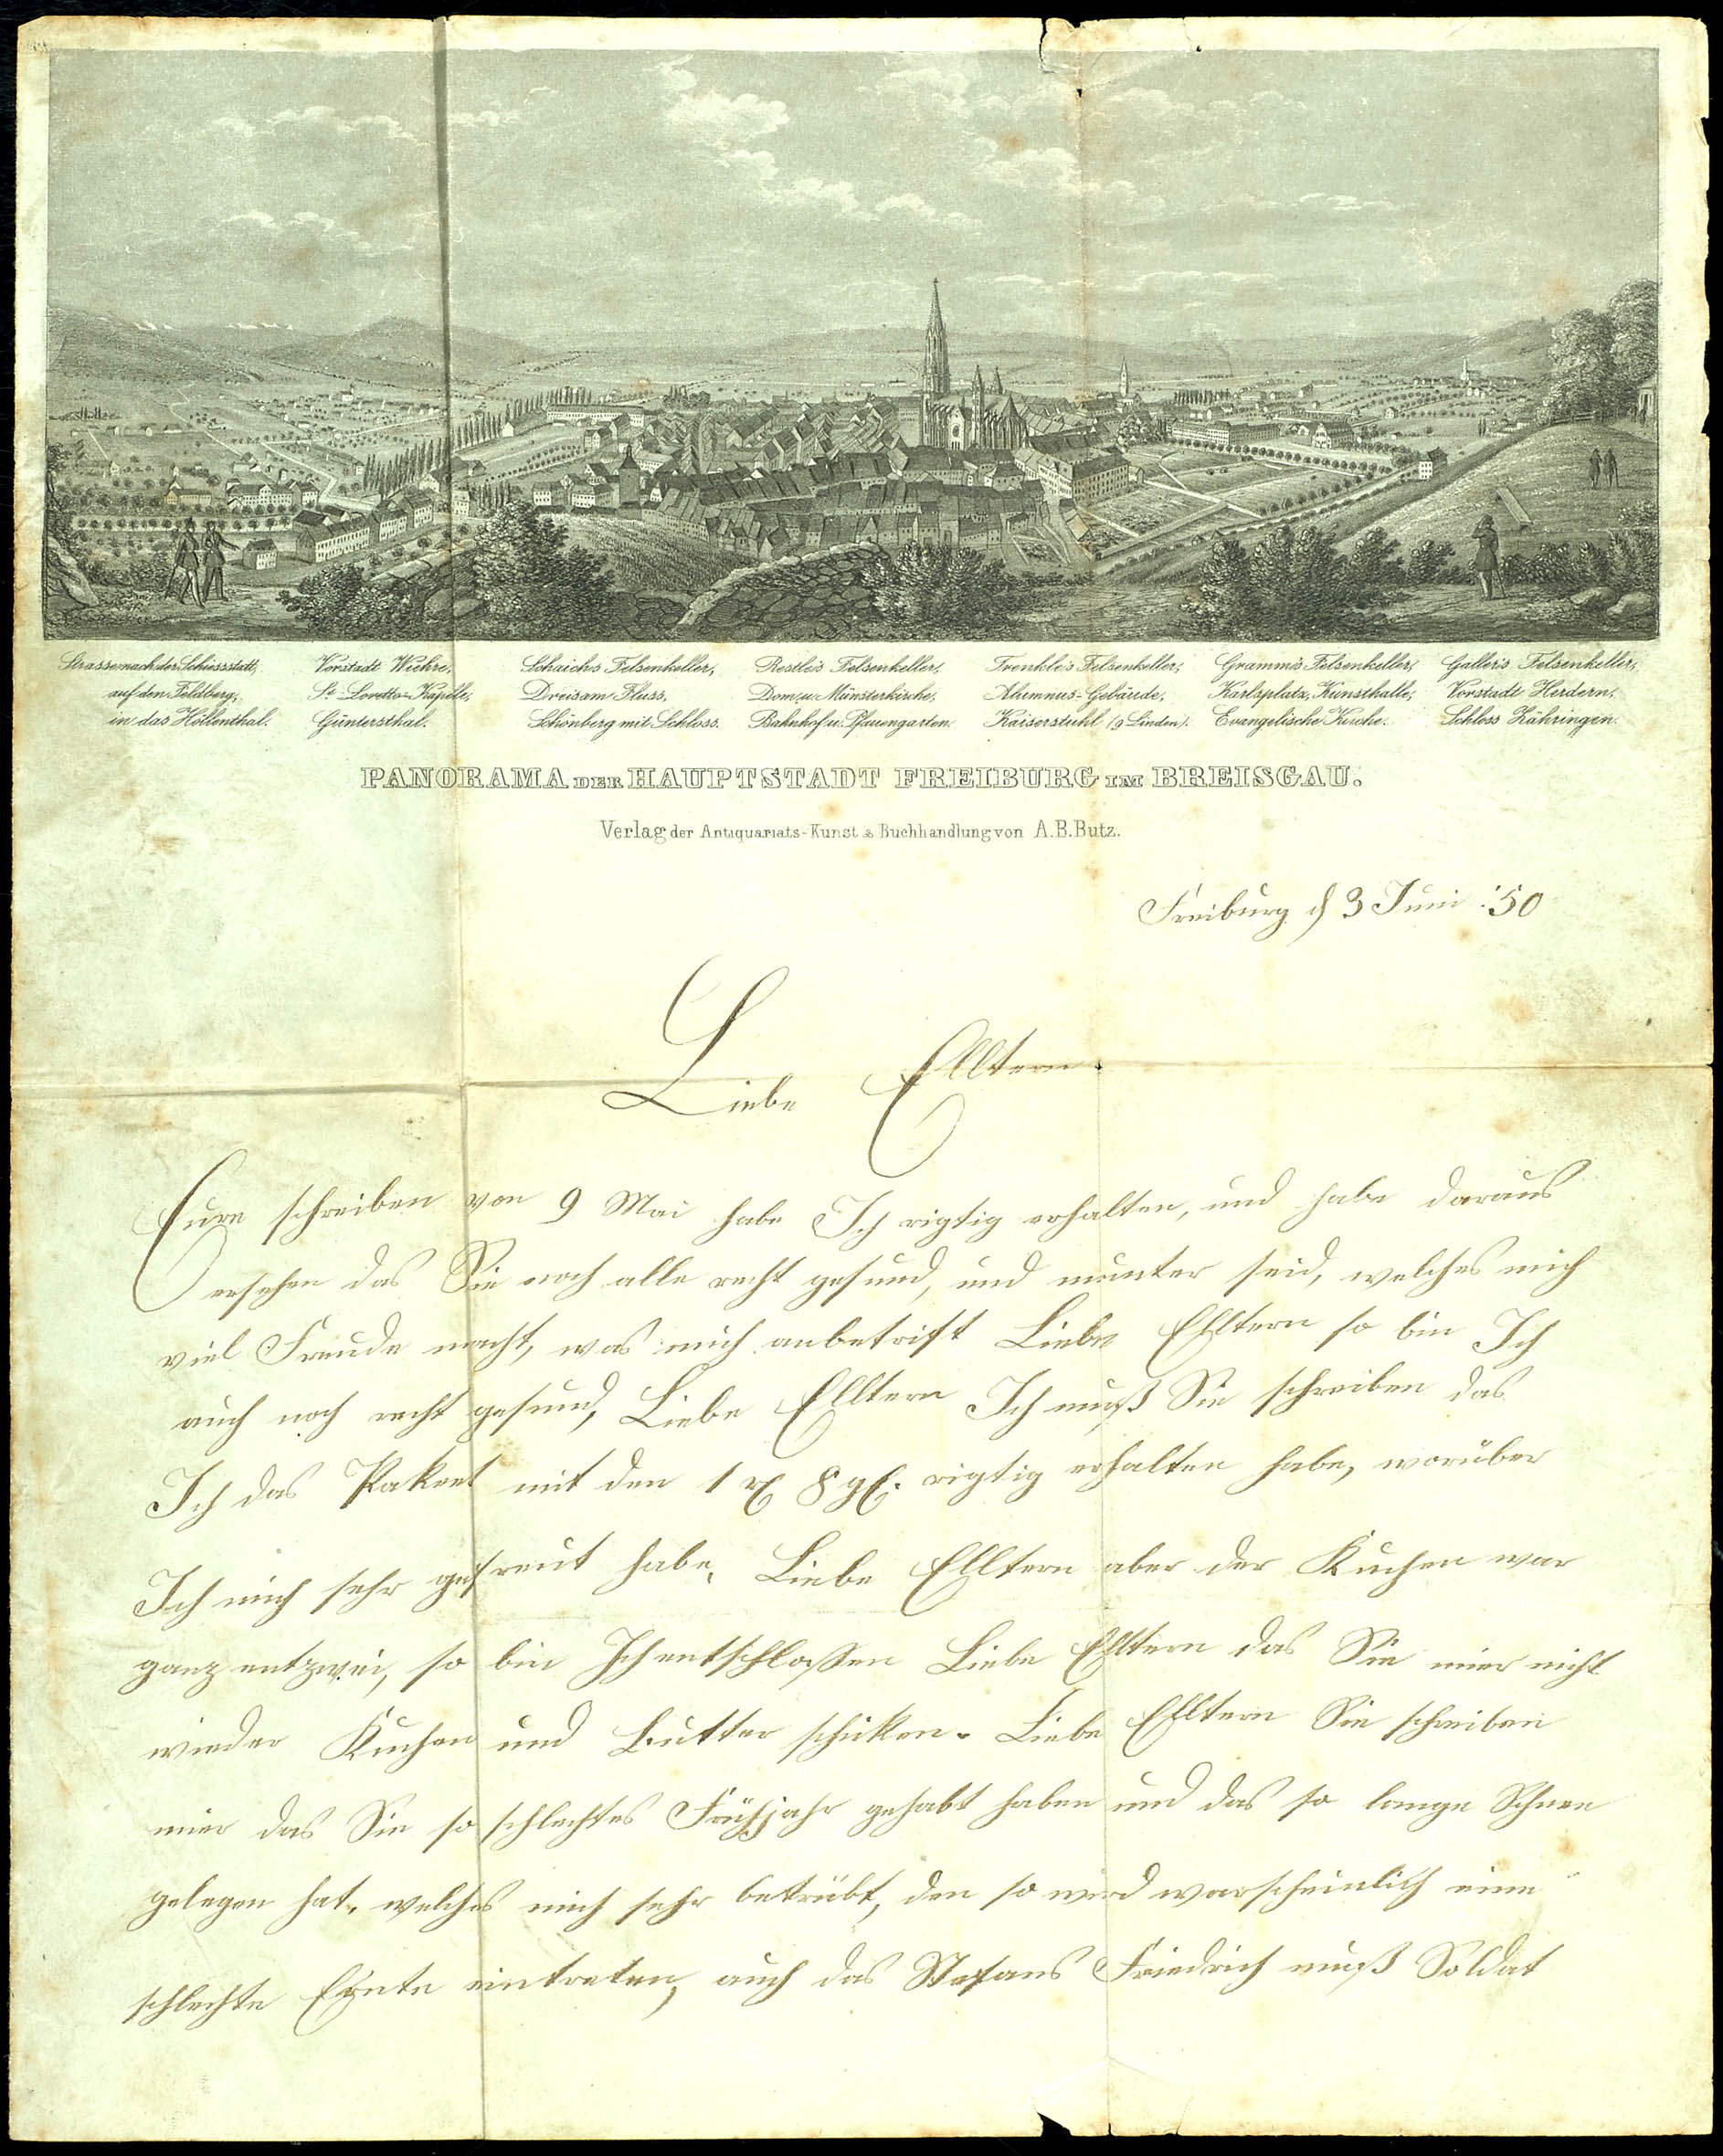 Strasse nach der Schiessstatt, Vorstadt Wiehre, Schaichs Felsenkeller, Restle's Felsenkeller, Trenkle's Felsenkeller, Gramm's Felsenkeller, Galler's Felsenkeller,
auf den Feldberg, St. Loretto-Kapelle, Dreisam Fluss, Dom u. Münsterkirche, Alumnus-Gebäude, Karlsplatz, Kunsthalle, Vorstadt Herdern,
in das Höllenthal. Güntersthal. Schönberg mit Schloss. Bahnhof u. Pfauengarten. Kaiserstuhl (9 Linden). Evangelische Kirche. Schloss Zähringen.
PANORAMA DER HAUPTSTADT FREIBURG IM BREISGAU.
Verlag der Antiquariats-Kunst & Buchhandlung von A.B.Butz.
Freiburg d 3 Juni '50
Liebe Elltern.
Eure schreiben von 9 Mai habe Ich rigtig erhalten, und habe daraus
ersehen das Sie noch alle recht gesund, und munter seid, welches mich
viel Freude macht, was mich anbetrift Liebe Elltern so bin Ich
auch noch recht gesund, Liebe Elltern Ich muß Sie schreiben das
Ich das Pakeet mit den 1 rℓ 8 gℓ. rigtig erhalten habe, worüber
Ich mich sehr gefreut habe. Liebe Elltern aber der Kuchen war
ganz entzwei, so bin Ich entschloßen Liebe Elltern das Sie mier nicht
wieder Kuchen und Butter schikken. Liebe Elltern Sie schreiben
mier das Sie so schlechtes Frühjahr gehabt haben und das so lange Schnee
gelegen hat, welches mich sehr betrübt, den so wird warscheinlich eine
schlechte Ernte eintreten, auch das Stefans Friedrich muß Soldat